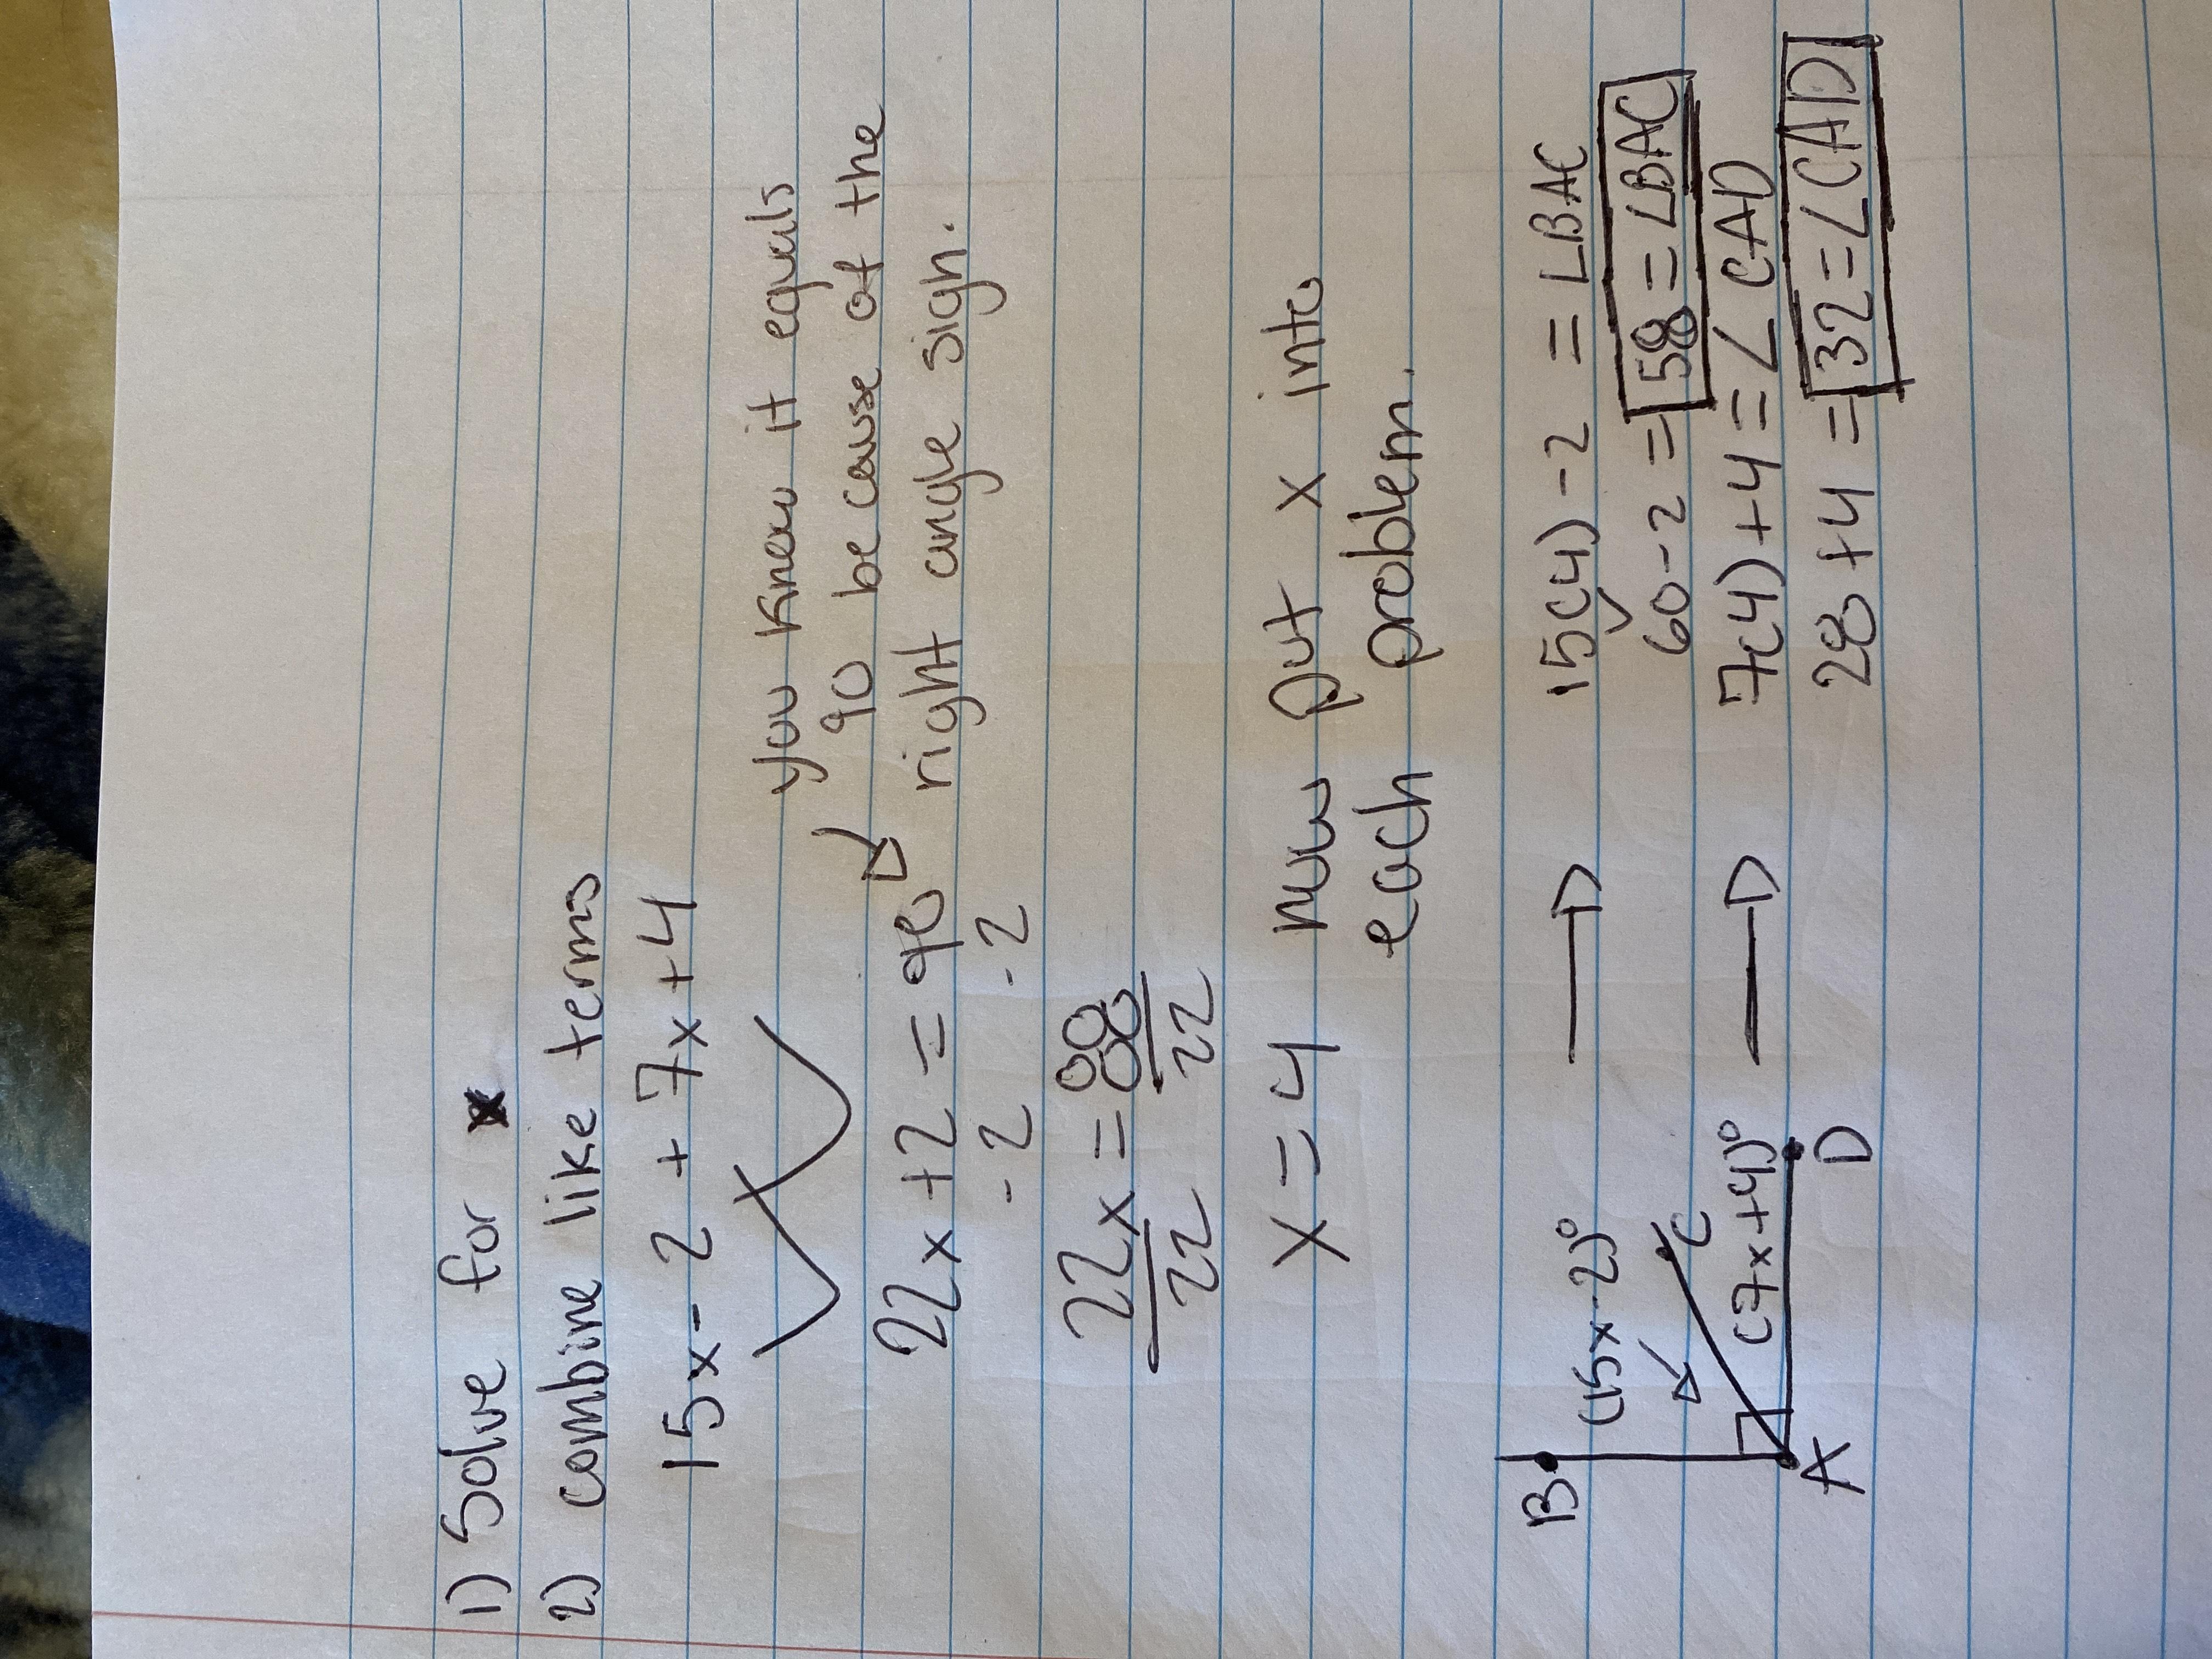 1) Solve for x
2) combine like terms
15x - 2 + 7x + 4
you know it equals
90 be cause of the
right angle sign.
22x + 2 = 90
- 2 - 2
22x = 88
22 22
x = 4 now put x into
each problem.
B (15x - 2)° 15(4) - 2 = ∠BAC
60 - 2 = 58 = ∠BAC
C
(7x + 4)° 7(4) + 4 = ∠CAD
A D 28 + 4 = 32 = ∠CAD